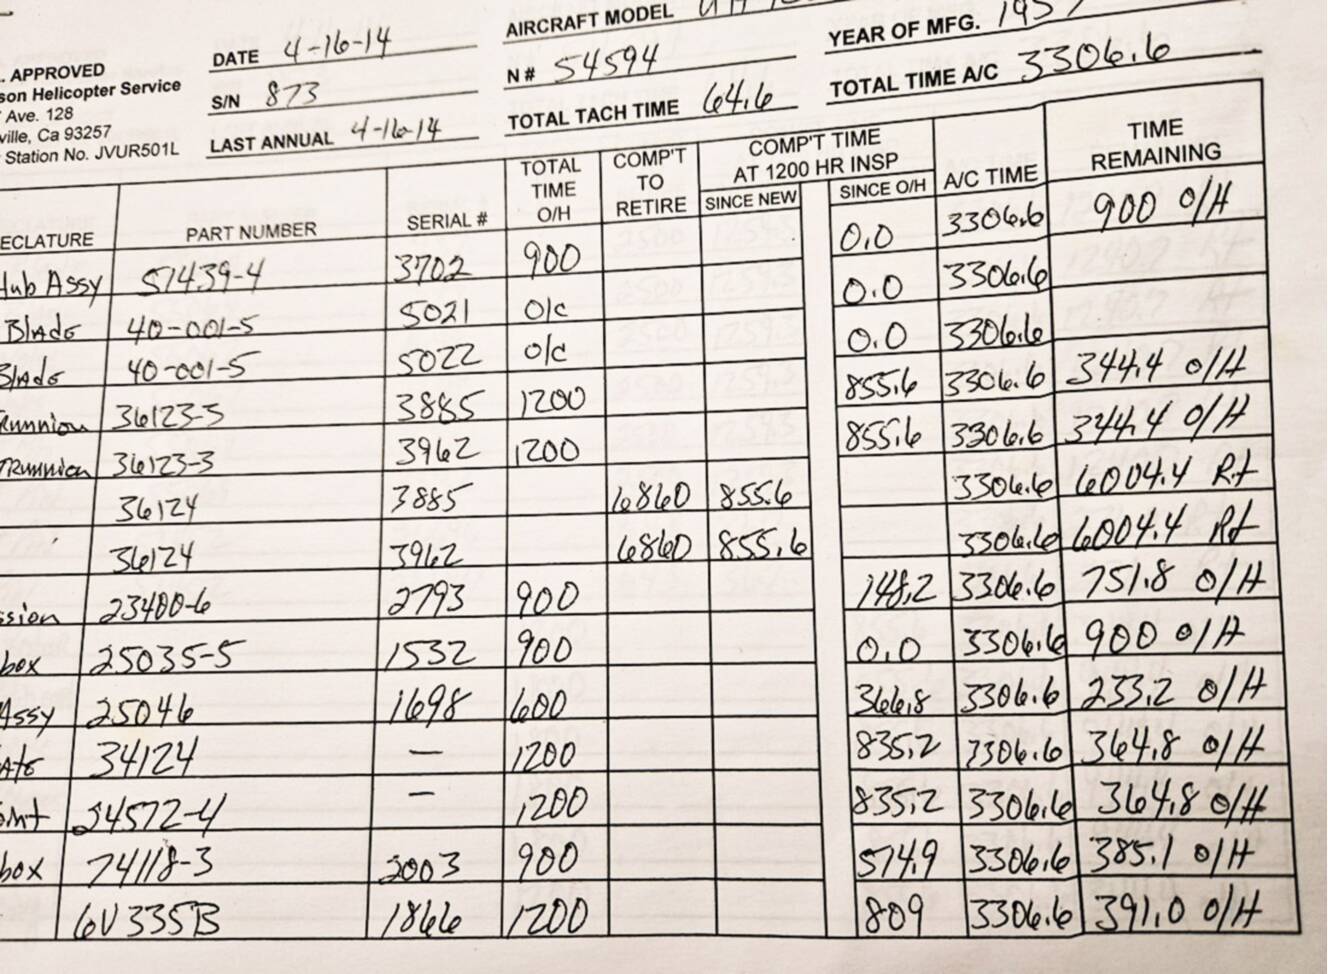 AIRCRAFT MODEL
YEAR OF MFG. 1957
DATE 4-16-14
N# 54594
TOTAL TIME A/C 3306.6
. APPROVED
son Helicopter Service
Ave. 128
ville, Ca 93257
Station No. JVUR501L
S/N 873
TOTAL TACH TIME 64.6
LAST ANNUAL 4-16-14
ECLATURE PART NUMBER SERIAL # TOTAL TIME O/H COMP'T TO RETIRE COMP'T TIME AT 1200 HR INSP SINCE NEW SINCE O/H A/C TIME TIME REMAINING
Hub Assy 51439-4 3702 900 0.0 3306.6 900 O/H
Blade 40-001-5 5021 O/C 0.0 3306.6
Blade 40-001-5 5022 O/C 0.0 3306.6
Trunnion 36123-3 3885 1200 855.6 3306.6 344.4 O/H
Trunnion 36123-3 3962 1200 855.6 3306.6 344.4 O/H
36124 3885 6860 855.6 3306.6 6004.4 Rt
36124 3962 6860 855.6 3306.6 6004.4 Rt
ssion 23400-6 2793 900 148.2 3306.6 751.8 O/H
box 25035-5 1532 900 0.0 3306.6 900 O/H
Assy 25046 1698 600 366.8 3306.6 233.2 O/H
Ate 34124 — 1200 835.2 3306.6 364.8 O/H
oint 24572-4 — 1200 835.2 3306.6 364.8 O/H
box 74118-3 2003 900 514.9 3306.6 385.1 O/H
6V335B 1866 1200 809 3306.6 391.0 O/H